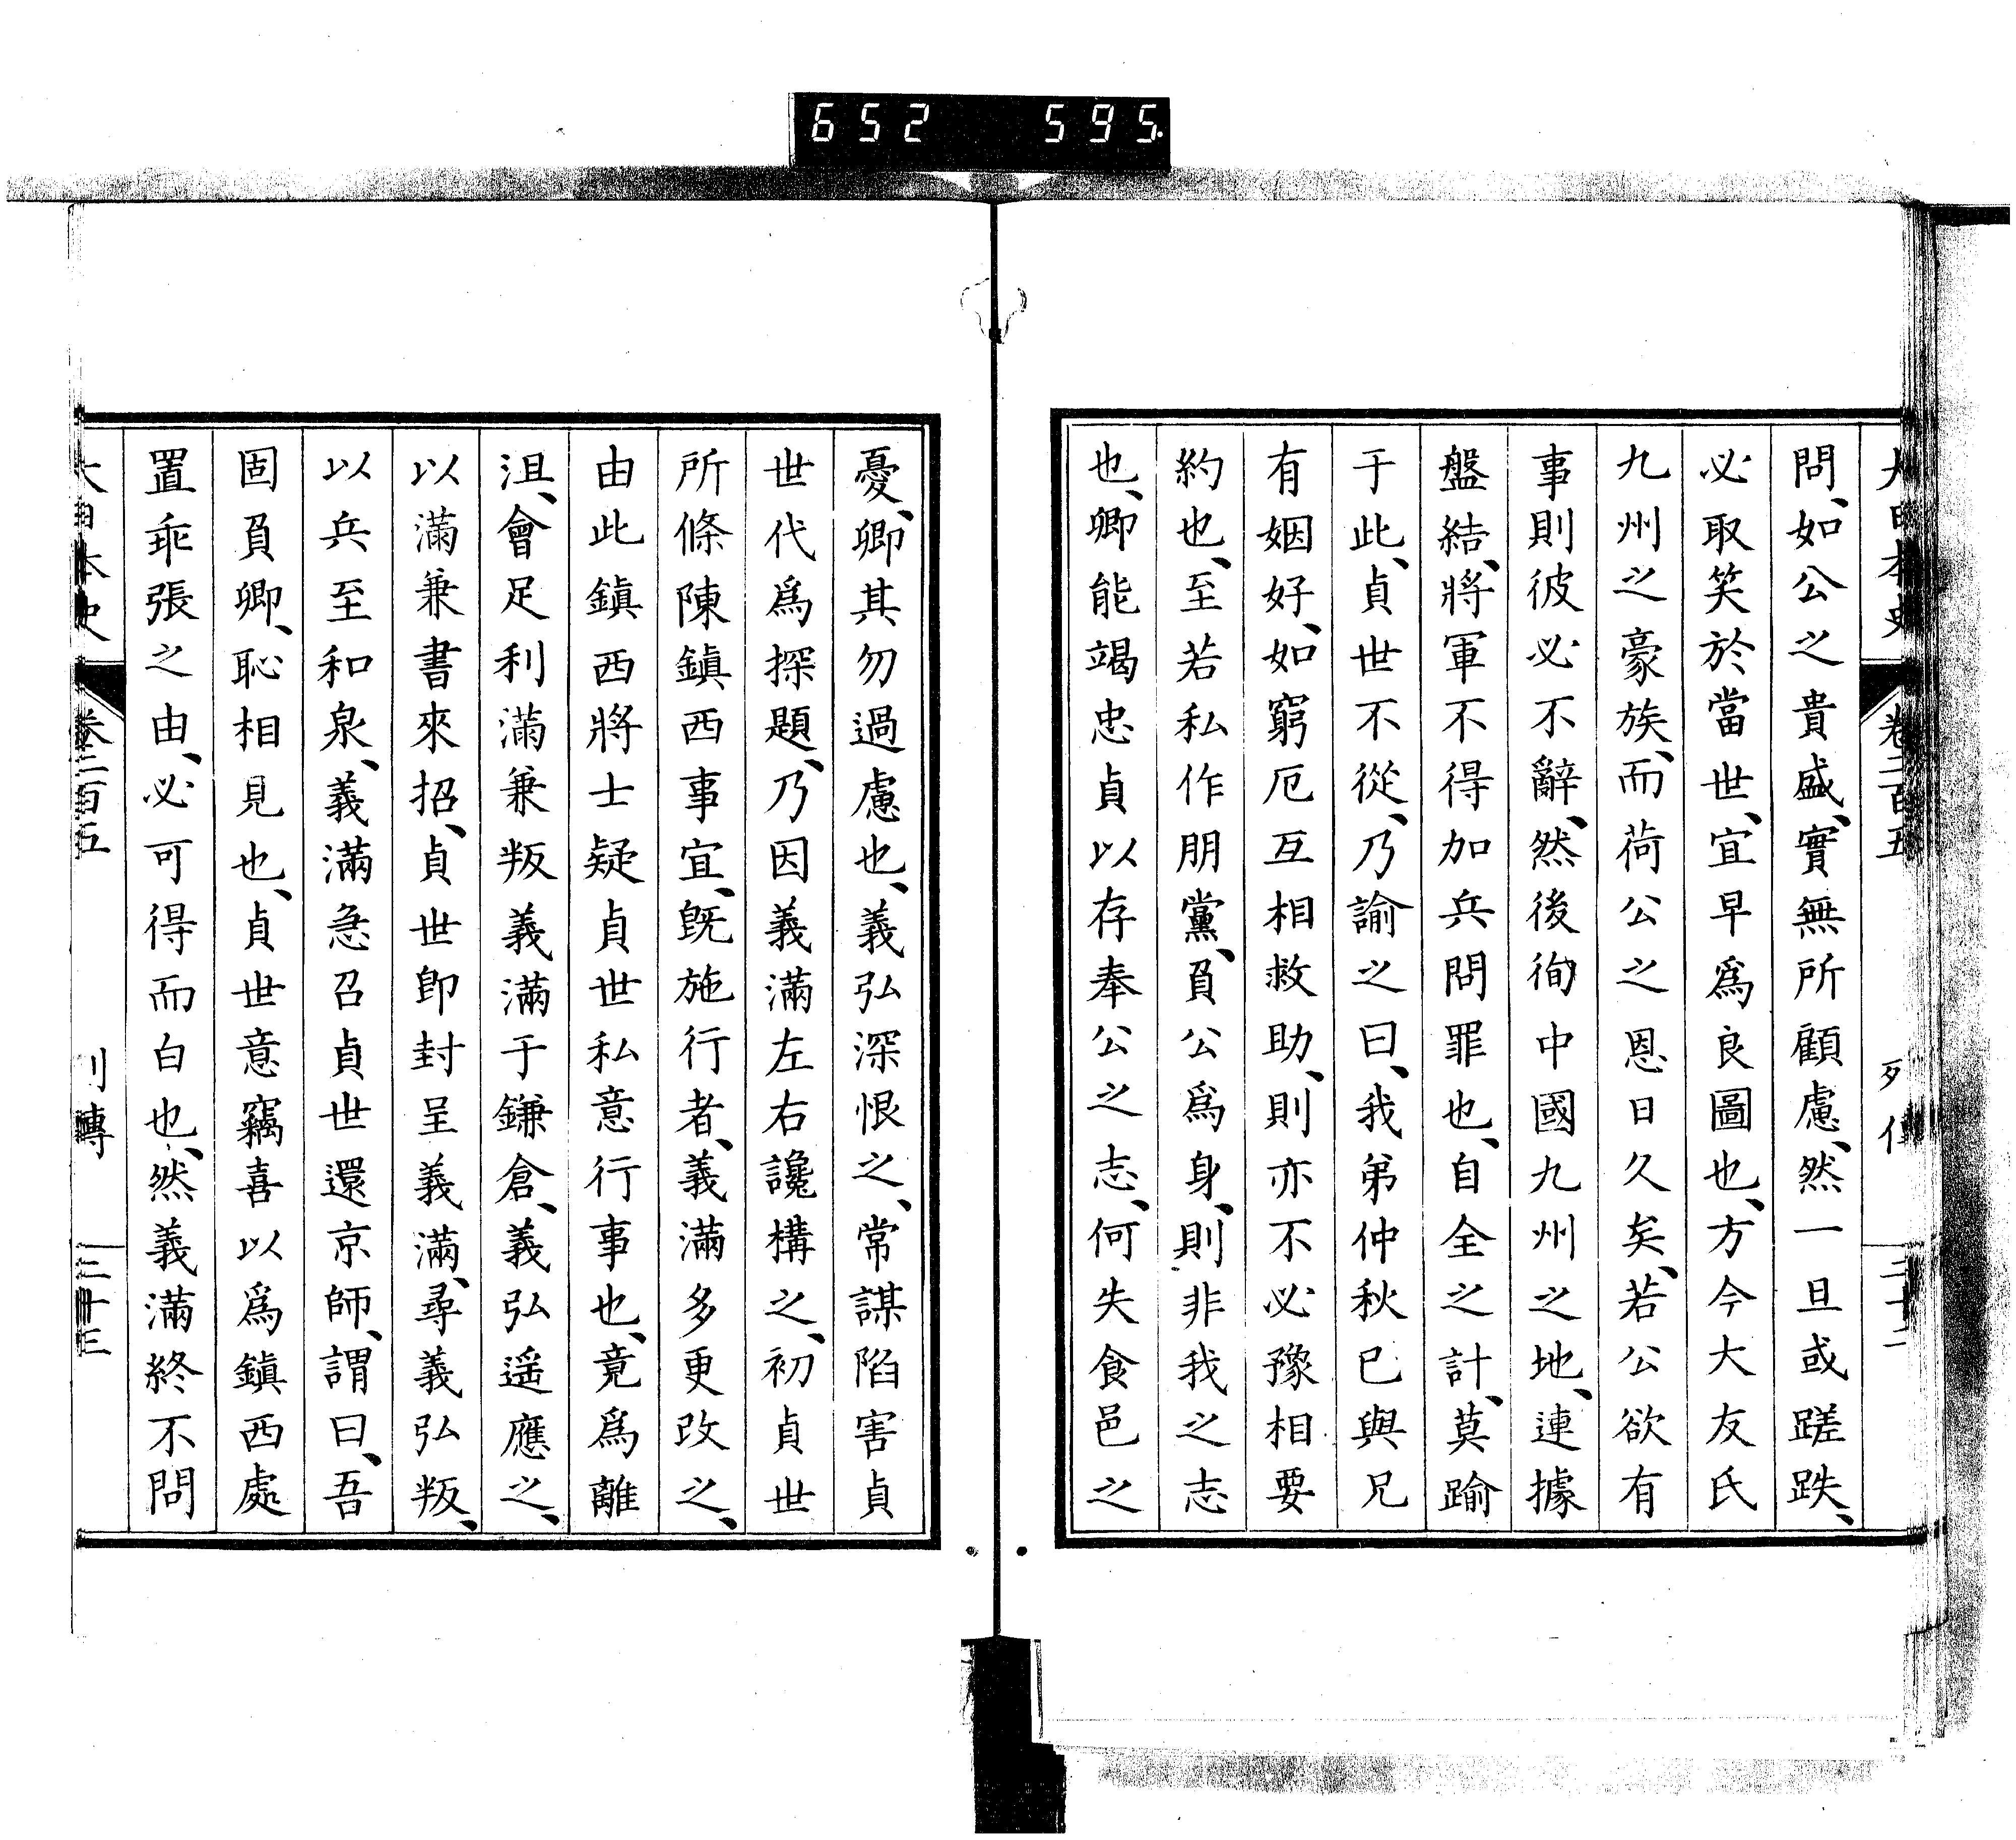 652 595
大日本史 卷二百五 列傳 三十二
問、如公之貴盛、實無所顧慮、然一旦或蹉跌、
必取笑於當世、宜早爲良圖也、方今大友氏
九州之豪族、而荷公之恩日久矣、若公欲有
事則彼必不辭、然後徇中國九州之地、連據
盤結、將軍不得加兵問罪也、自全之計、莫踰
于此、貞世不從、乃諭之曰、我弟仲秋已與兄
有姻好、如窮厄互相救助、則亦不必豫相要
約也、至若私作朋黨、負公爲身、則非我之志
也、卿能竭忠貞以存奉公之志、何失食邑之
憂、卿其勿過慮也、義弘深恨之、常謀陷害貞
世代爲探題、乃因義滿左右讒構之、初貞世
所條陳鎭西事宜、既施行者、義滿多更改之、
由此鎭西將士疑貞世私意行事也、竟爲離
沮、會足利滿兼叛義滿于鎌倉、義弘遥應之、
以滿兼書來招、貞世卽封呈義滿、尋義弘叛、
以兵至和泉、義滿急召貞世還京師、謂曰、吾
固負卿、恥相見也、貞世意竊喜以爲鎭西處
置乖張之由、必可得而白也、然義滿終不問
大日本史 卷二百五 列傳 三十三